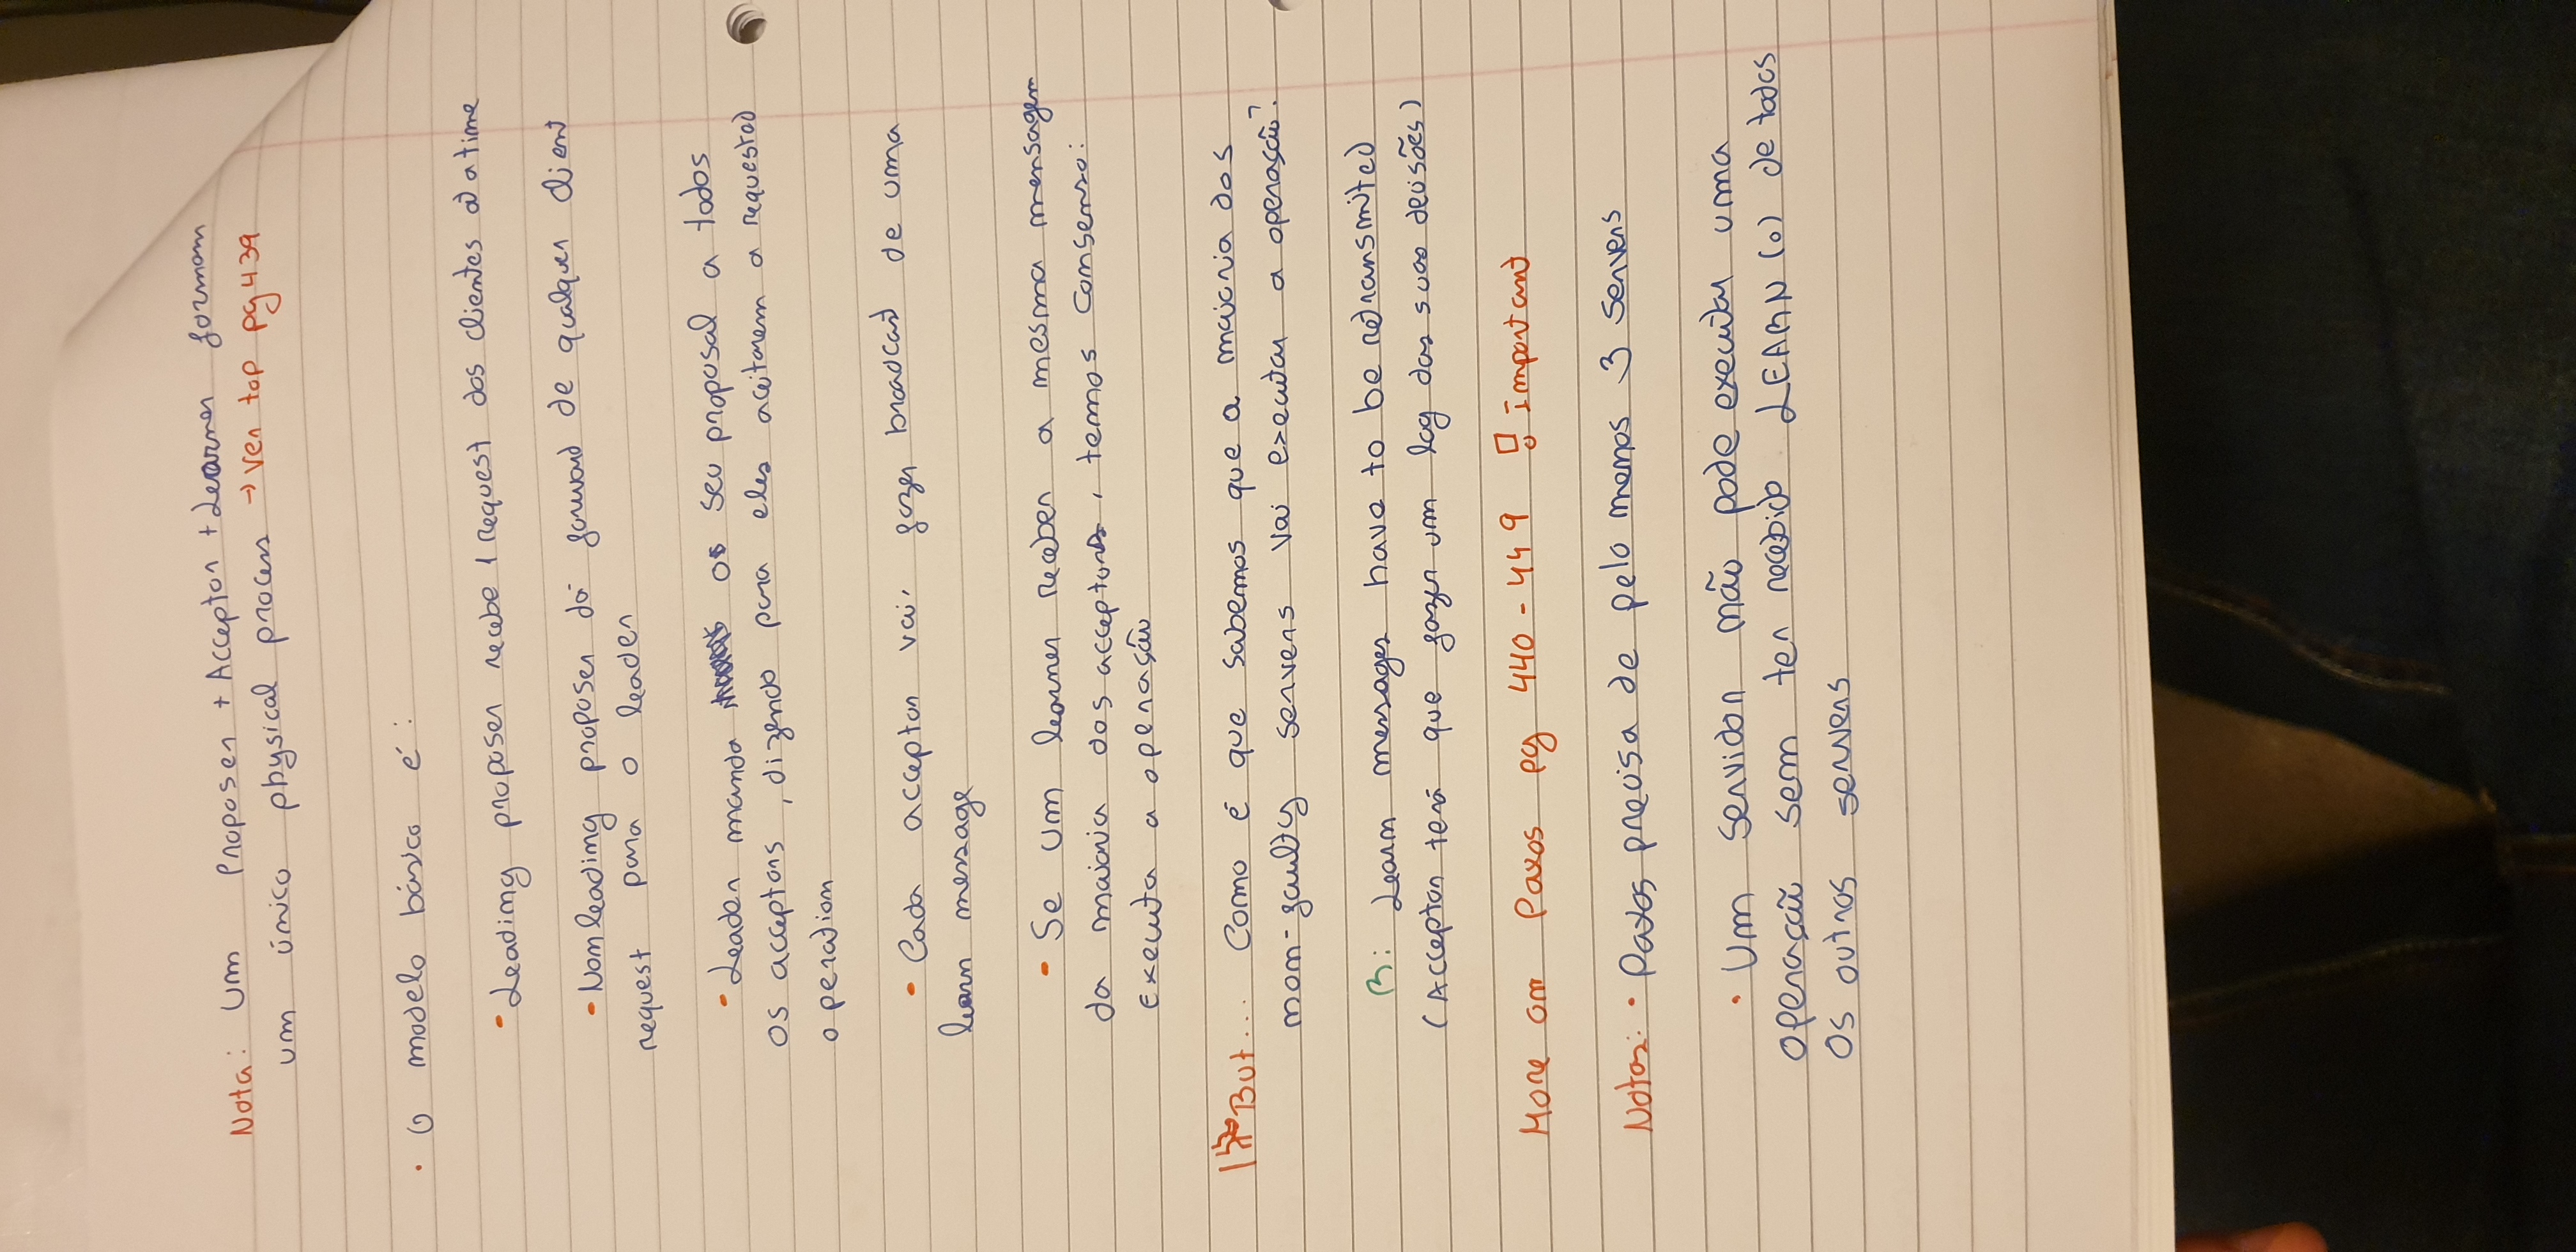 Nota: Um Proposer + Acceptor + Learner formam
um único physical process → ver top pg 439
• O modelo básico é:
• Leading proposer recebe 1 request dos clientes at a time
• Nonleading proposer dá forward de qualquer client
request para o leader
• Leader manda o seu proposal a todos
os acceptors, dizendo para eles aceitarem a requested
operation
• Cada acceptor vai fazer broadcast de uma
learn message
• Se um learner receber a mesma mensagem
da maioria dos acceptors, temos consenso:
Executa a operação
But... Como é que sabemos que a maioria dos
non-faulty servers vai executar a operação?
R: Learn messages have to be retransmited
(Acceptor terá que fazer um log das suas decisões)
More on Paxos pg 440 - 449 ! important
Notas: • Paxos precisa de pelo menos 3 servers
• Um servidor não pode executar uma
operação sem ter recebido LEARN (o) de todos
os outros servers